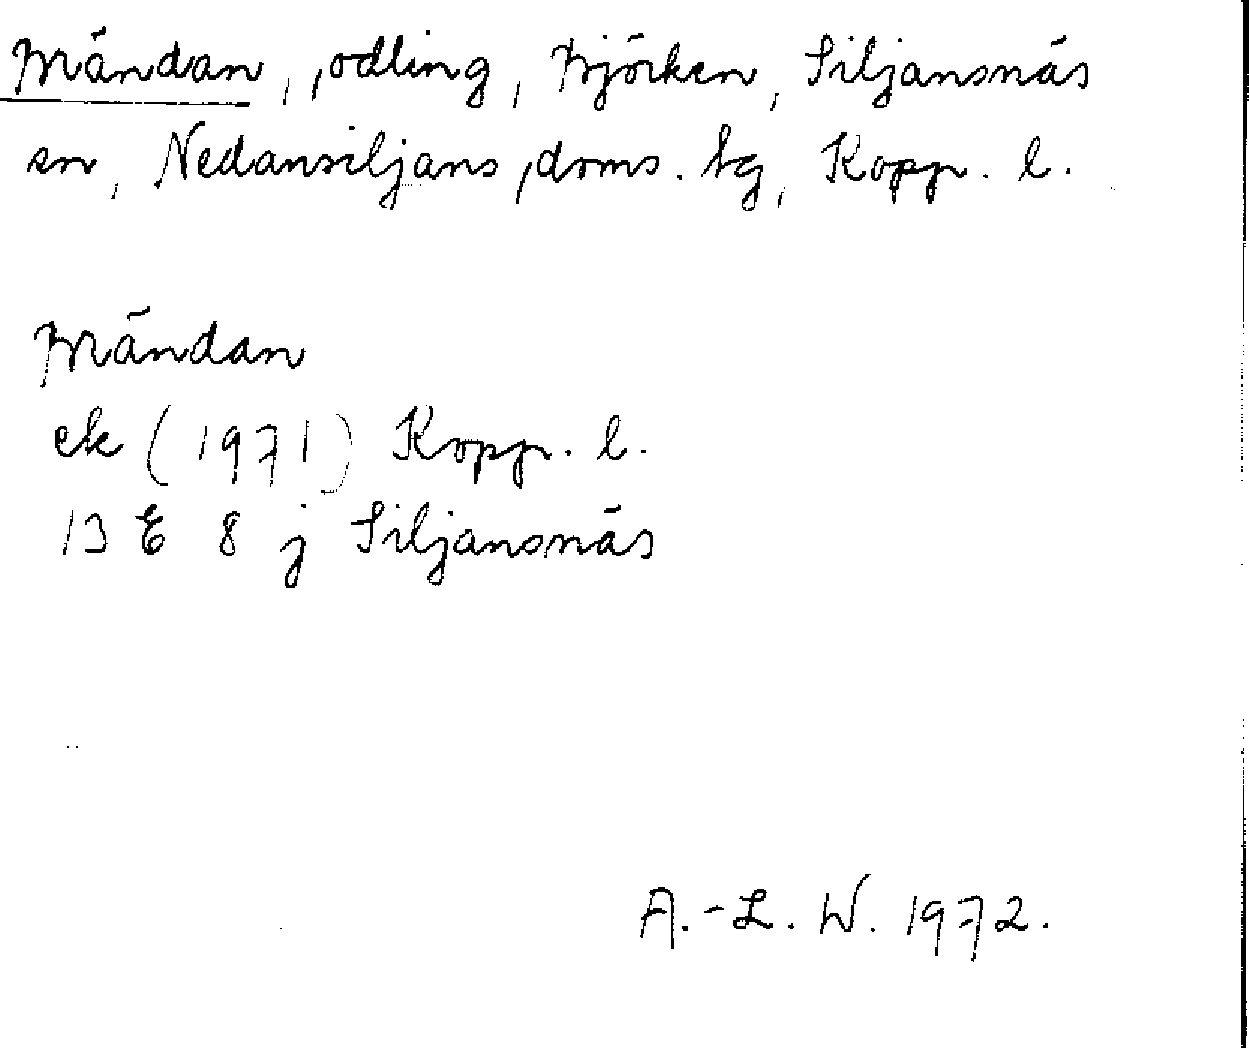 Brändan, odling, Björken, Siljansnäs
sn, Nedansiljans doms. tg, Kopp. l.
Brändan
ek (1971) Kopp. l.
13 E 8 j Siljansnäs
A.-L. W. 1972.